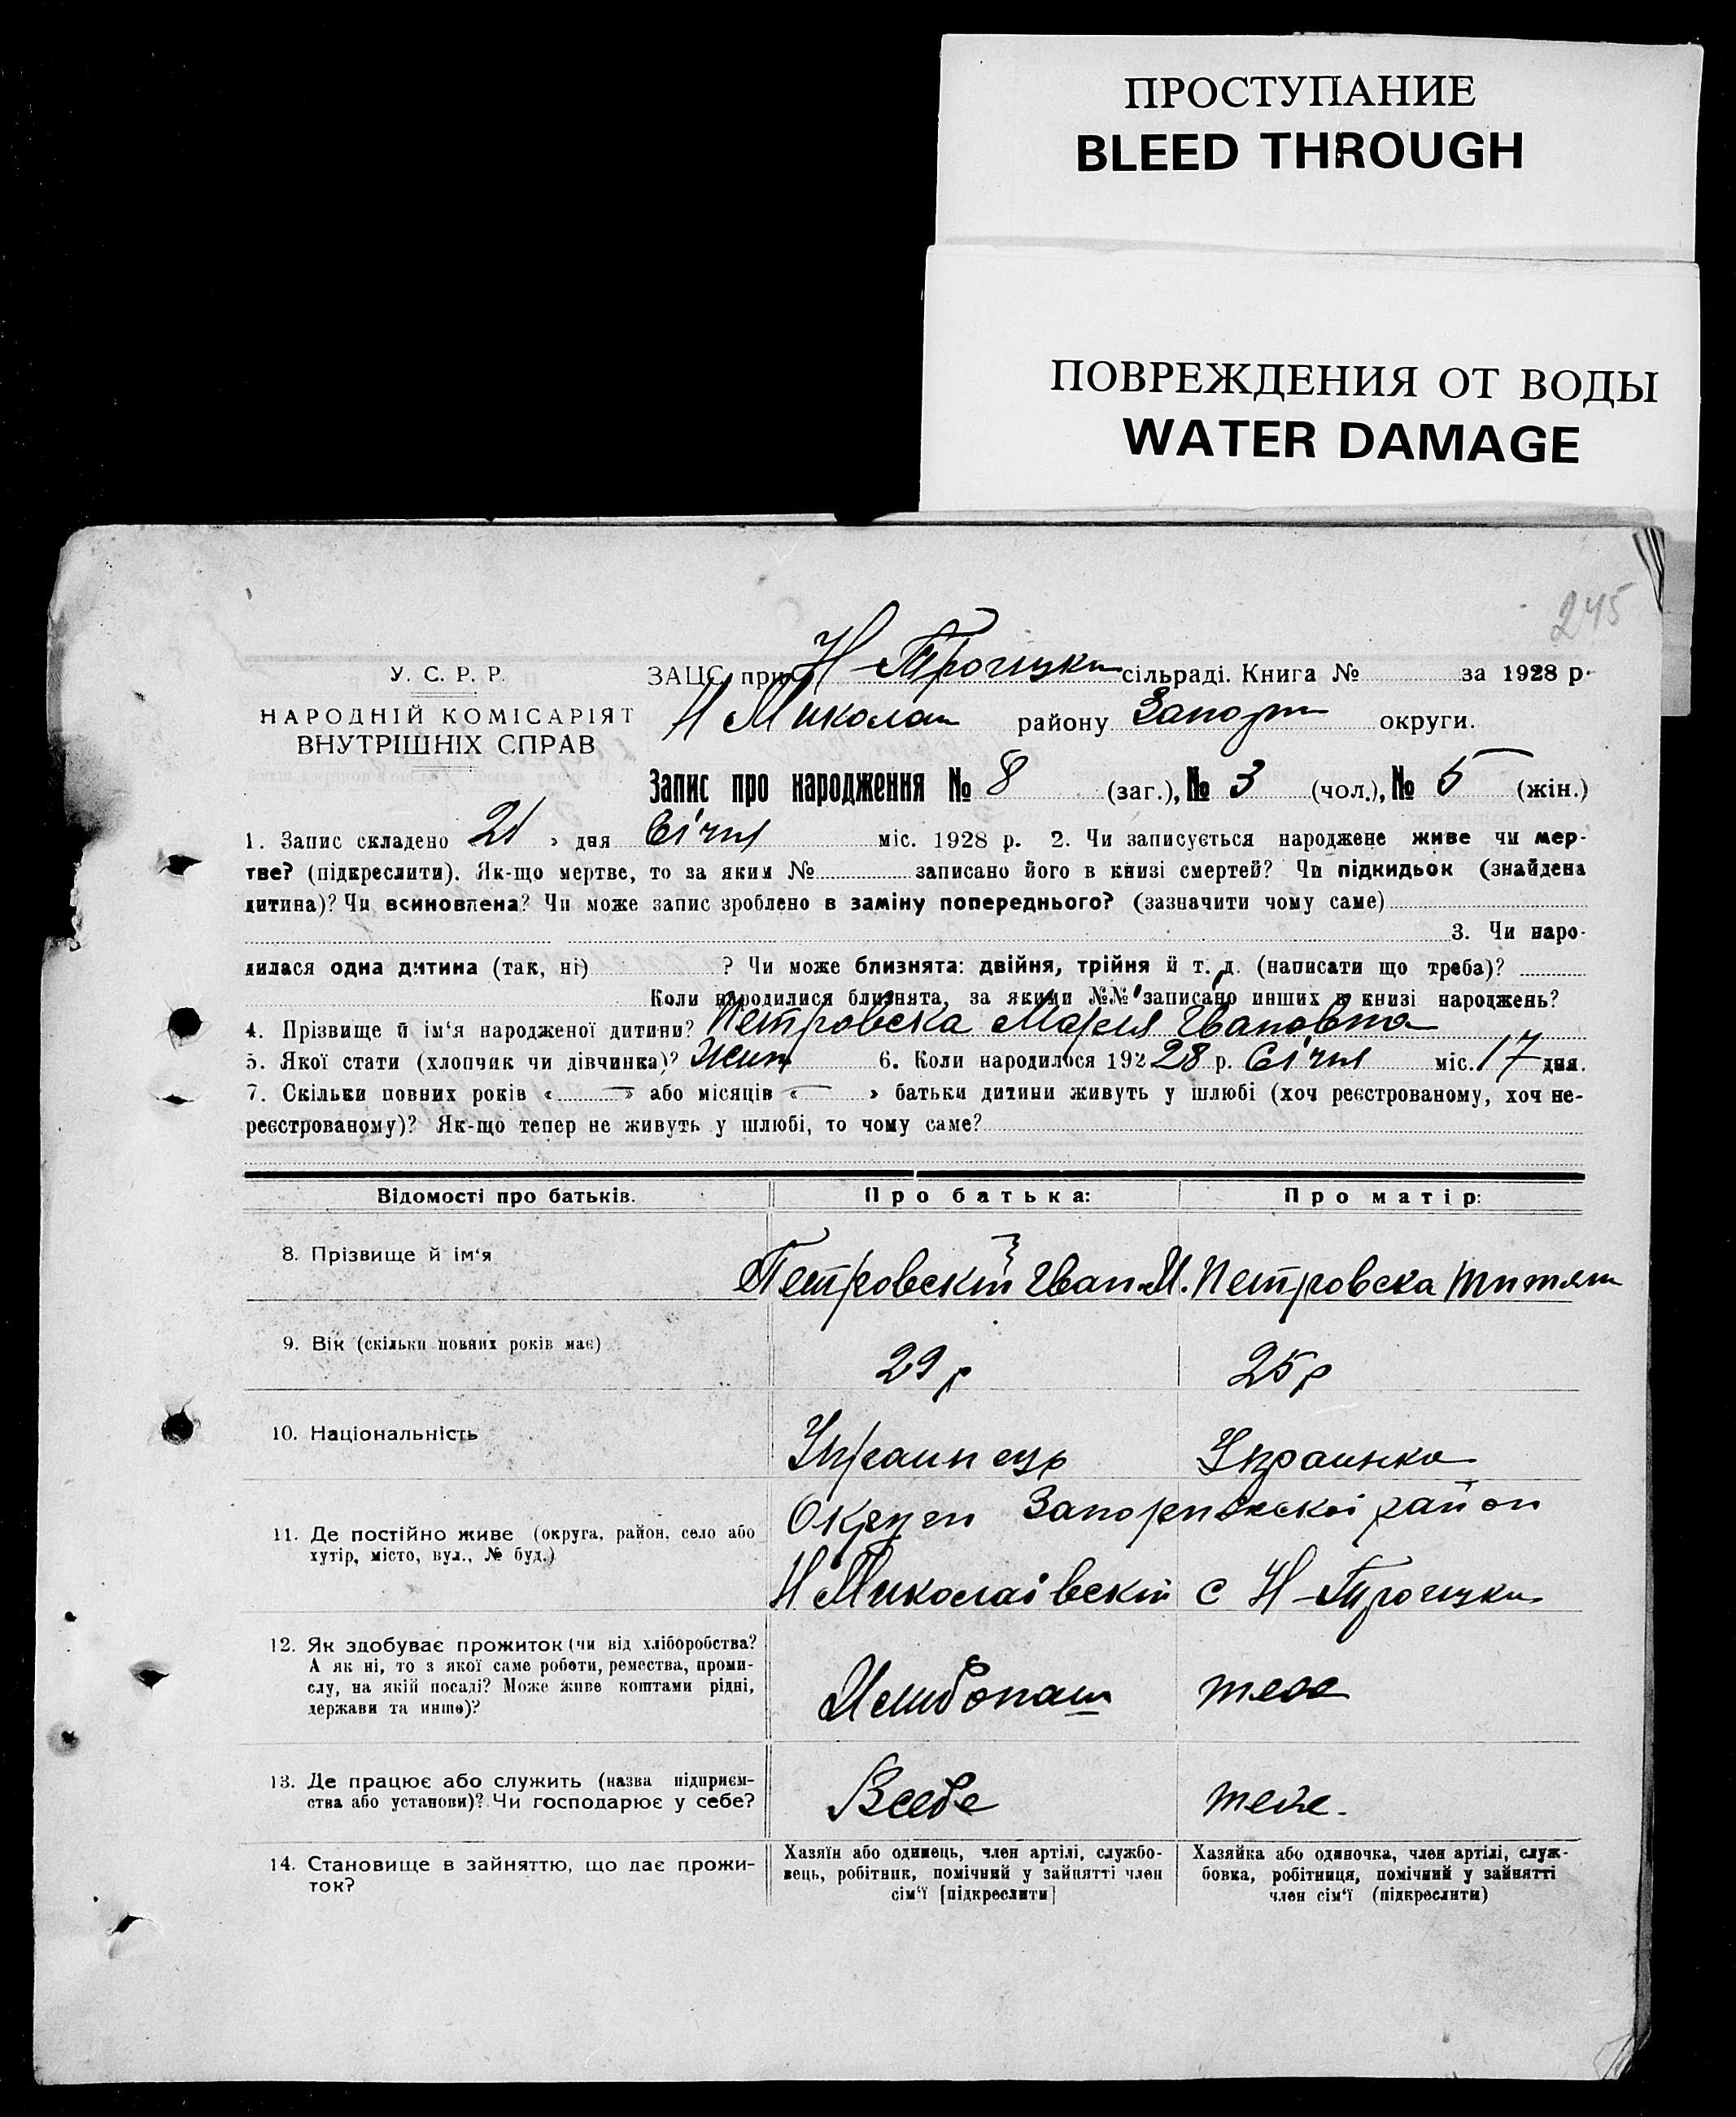 ПРОСТУПАНИЕ
BLEED THROUGH
ПОВРЕЖДЕНИЯ ОТ ВОДЫ
WATER DAMAGE
245
У. С. Р. Р.
НАРОДНІЙ КОМІСАРІЯТ
ВНУТРІШНІХ СПРАВ
ЗАЦС при Н-Троицки сільраді. Книга № за 1928 р.
Н Микола району Запор округи.
Запис про народження № 8 (заг.), № 3 (чол.), № 5 (жін.)
1. Запис складено 21 » дня Січня міс. 1928 р. 2. Чи записується народжене живе чи мер-
тве? (підкреслити). Як-що мертве, то за яким № записано його в книзі смертей? Чи підкидьок (знайдена
дитина)? Чи всиновлена? Чи може запис зроблено в заміну попереднього? (зазначити чому саме)
3. Чи наро-
дилася одна дитина (так, ні) ? Чи може близнята: двійня, трійня й т. д. (написати що треба)?
Коли народилися близнята, за якими №№ записано инших в книзі народжень?
4. Прізвище й ім'я народженої дитини? Петровска Мария Ивановна
5. Якої стати (хлопчик чи дівчинка)? Жин 6. Коли народилося 192 28 р. Січня міс. 17 дня.
7. Скільки повних років « — » або місяців « — » батьки дитини живуть у шлюбі (хоч реєстрованому, хоч не-
реєстрованому)? Як-що тепер не живуть у шлюбі, то чому саме?
Відомості про батьків. Про батька: Про матір:
8. Прізвище й ім'я
Петровскій Иван М. Петровска
9. Вік (скільки повних років має)
29 р 25 р
10. Національність
Украинець Украинка
11. Де постійно живе (округа, район, село або
хутір, місто, вул., № буд.)
Округи Запорижскоі район
Н Миколаівскій с Н-Троицки
12. Як здобуває прожиток (чи від хліборобства?
А як ні, то з якої саме роботи, ремества, проми-
слу, на якій посаді? Може живе коштами рідні,
держави та инше)?
теж
13. Де працює або служить (назва підприєм-
ства або установи)? Чи господарює у себе?
Всебе теже.
14. Становище в зайняттю, що дає прожи-
ток?
Хазяїн або одинець, член артілі, службо-
вець, робітник, помічний у зайнятті член
сім'ї [підкреслити]
Хазяйка або одиночка, член артілі, служ-
бовка, робітниця, помічний у зайнятті
член сім'ї (підкреслити)